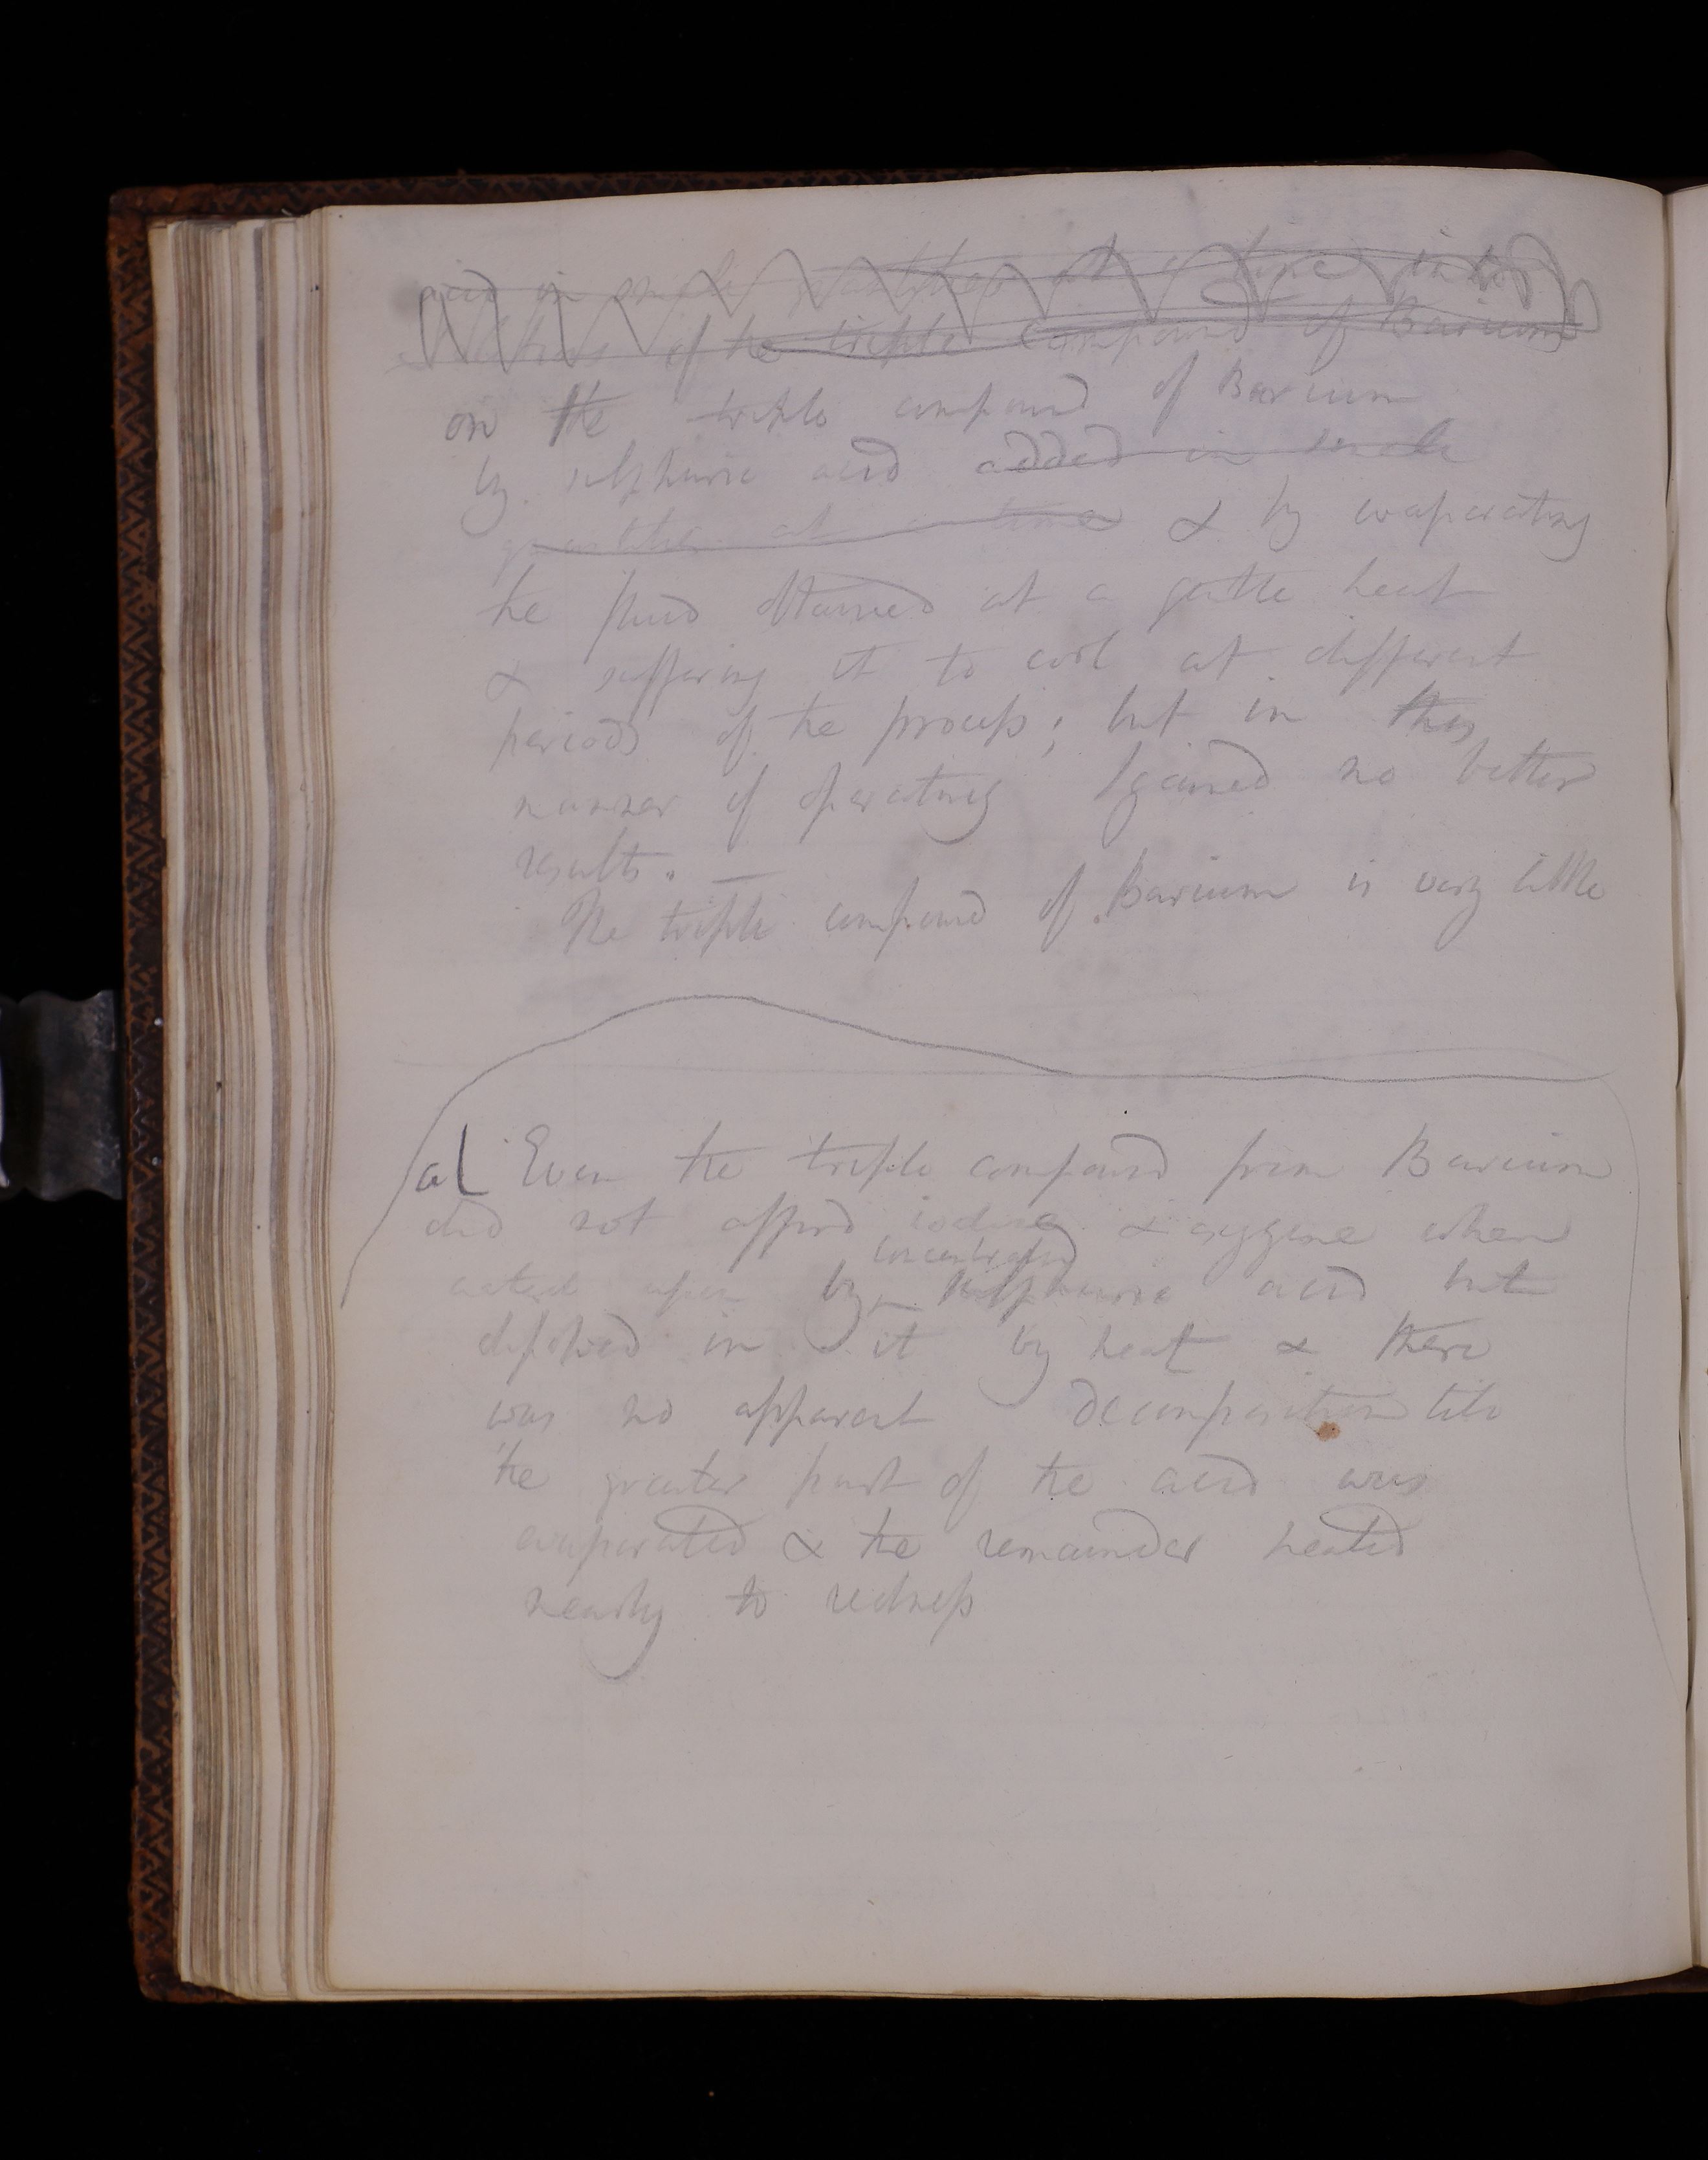 acid in small quantities at a time into
solutions of the triple compound of Barium
on the triple compound of Barium
by sulphuric acid added in small
quantities at a time & by evaporating
the fluid obtained at a gentle heat
& suffering it to cool at different
periods of the process; but in this
manner of operating I gained no better
results. —
The triple compound of Barium is very little
a Even the triple compound from Barium
did not afford iodine & oxygene when
concentrated
acted upon by sulphuric acid but
dissolved in it by heat & there
was no apparent decomposition till
the greater part of the acid was
evaporated & the remainder heated
nearly to redness